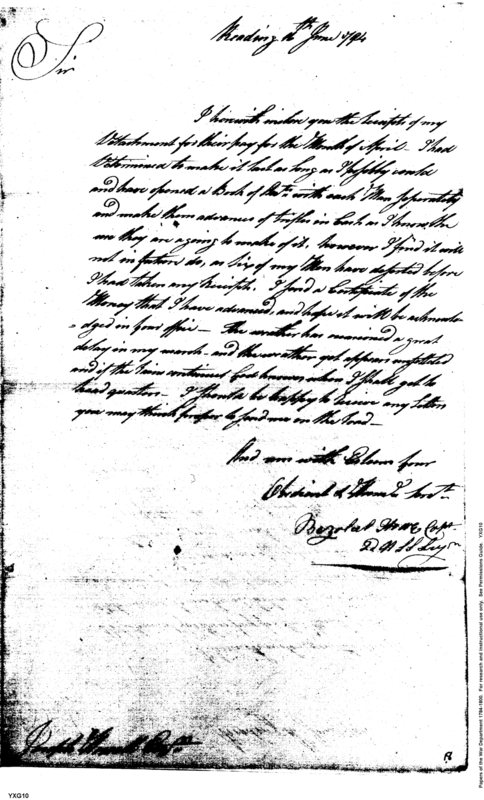 Reading 16th June 1794
Sir
I herewith inclose you the Receipts of my
Detachment for their pay for the Month of April. I had
determined to make it last as long as I possibly could
and have opened a Book of Accts with each Man seperately
and make them advances of trifles in Cash as I know the
use they are agoing to make of it. however I find it will
not in future do, as six of my Men have deserted before
I had taken any Receipts. I send a Certificate of the
Money that I have advanced, and hope it will be acknowle
-dged in your office — The weather has occasioned a great
delay in my march - and the weather yet appears unsettled
and if the rain continues God knows when I shall get to
head quarters - I should be happy to receive any Letters
you may think proper to send me on the Road —
And am with Esteem your
Obedient & Humle Servt
Bezaleel Howe Capt
2d S Legn
Joseph Howell Esqr
YXG10
Papers of the War Department 1784-1800. For research and instructional use only. See Permissions Guide. YXG10